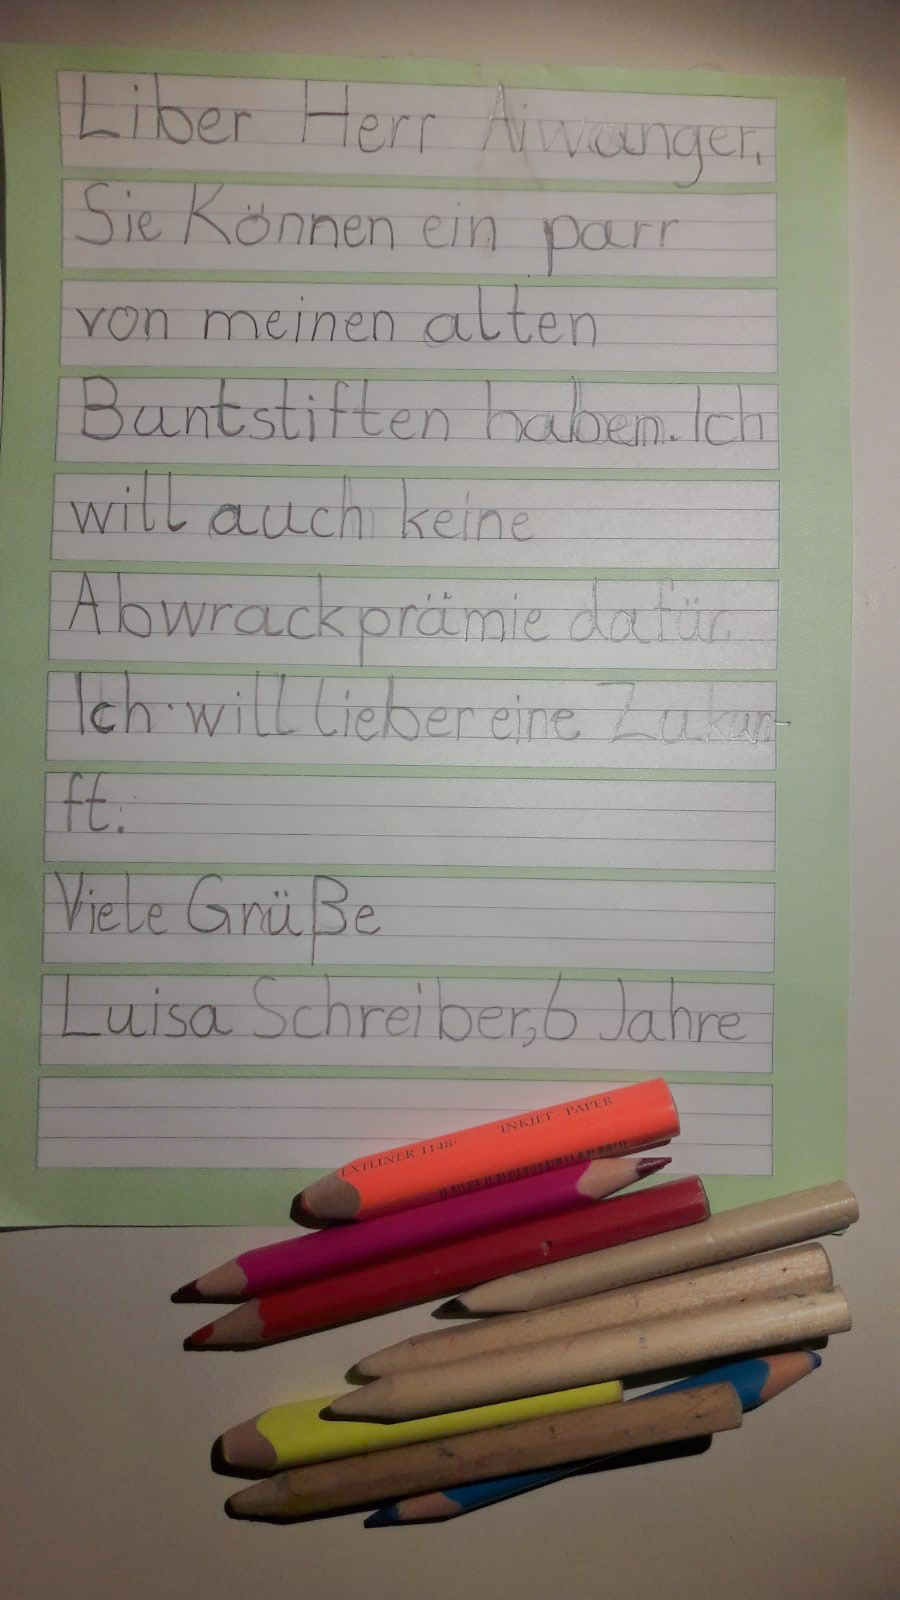 Liber Herr Aiwanger,
Sie Können ein parr
von meinen alten
Buntstiften haben. Ich
will auch keine
Abwrackprämie dafür.
Ich will lieber eine Zukun-
ft.
Viele Grüße
Luisa Schreiber, 6 Jahre
INKJET - PAPER